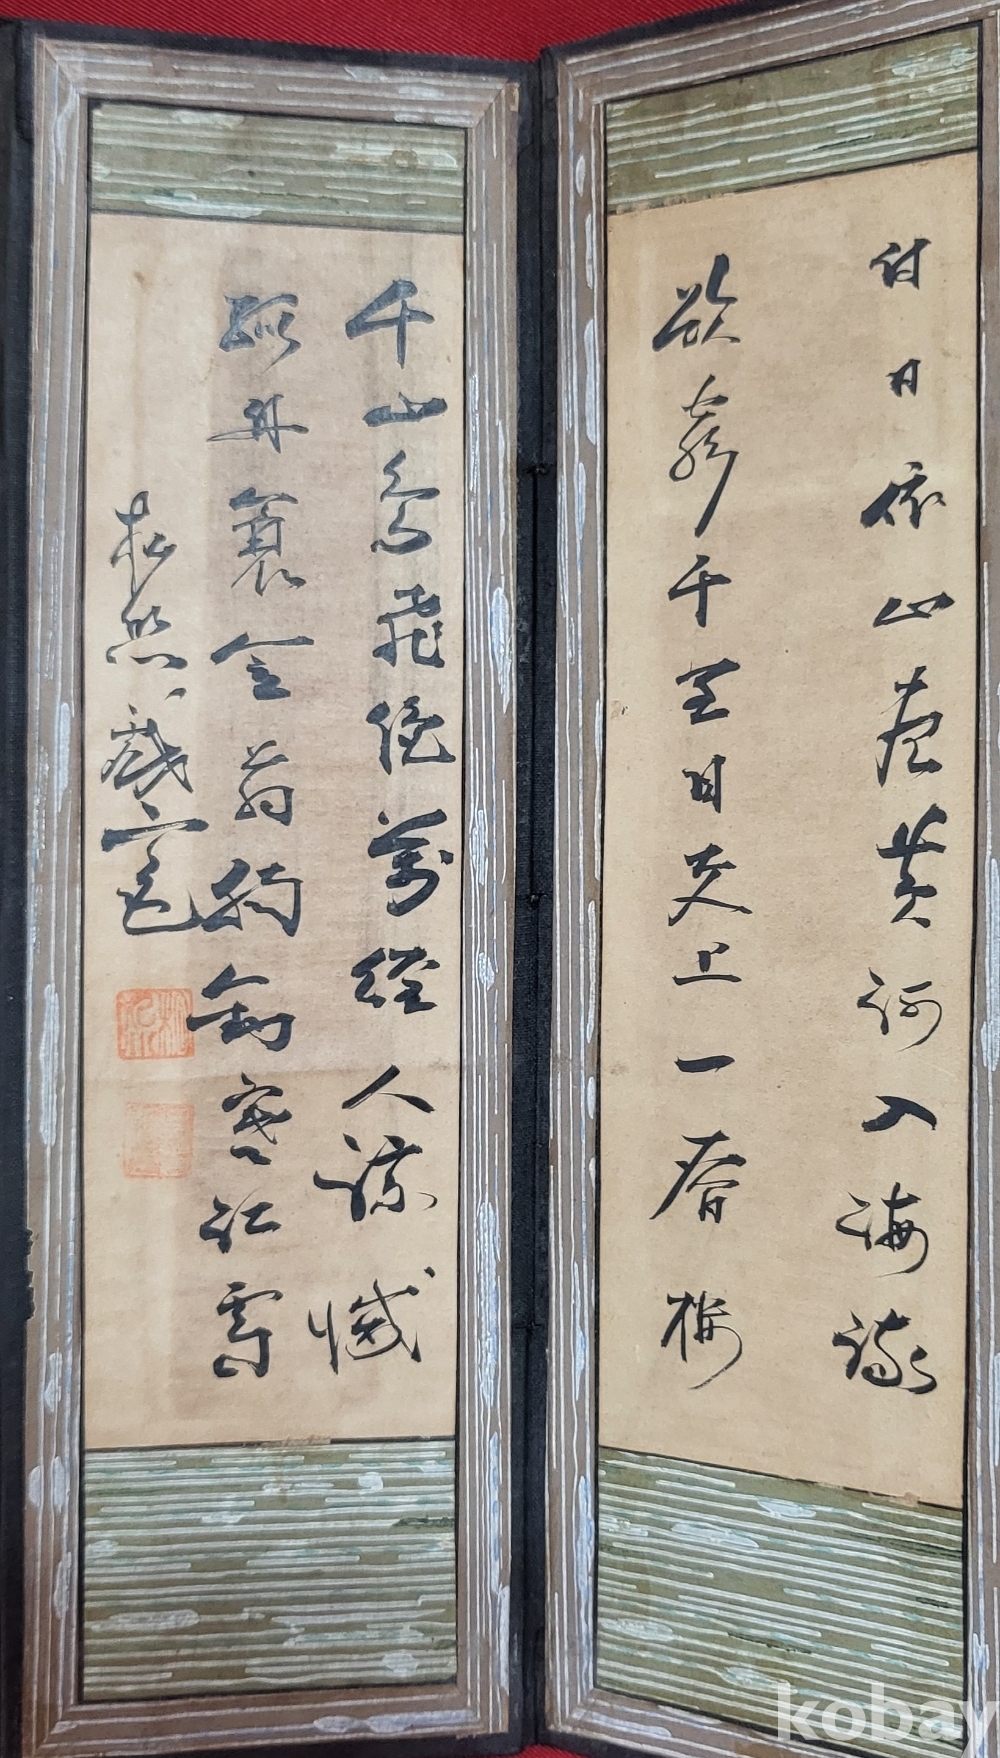 日依山盡黃河入海流
欲窮千里目更上一層樓
千山鳥飛絕萬徑人蹤滅
孤舟蓑笠翁獨釣寒江雪
kobay